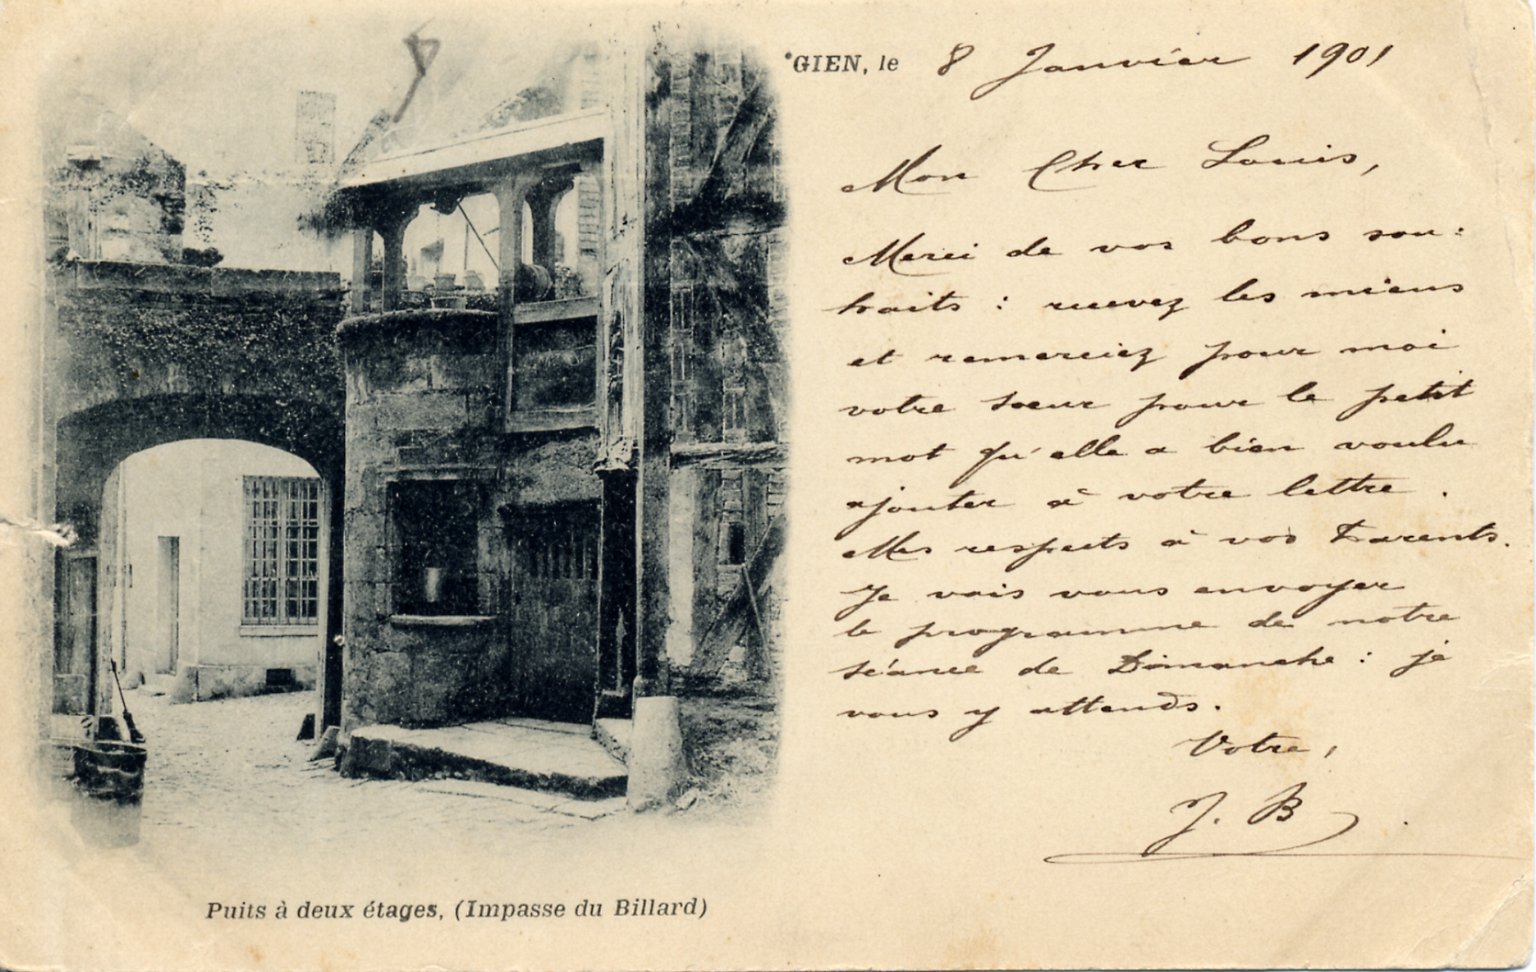 GIEN, le 8 Janvier 1901
Mon Cher Louis,
Merci de vos bons sou-
haits : recevez les miens
et remerciez pour moi
votre sœur pour le petit
mot qu'elle a bien voulu
ajouter à votre lettre.
Mes respects à vos Parents.
Je vais vous envoyer
le programme de notre
séance de Dimanche : je
vous y attends.
Votre,
J. B.
Puits à deux étages, (Impasse du Billard)